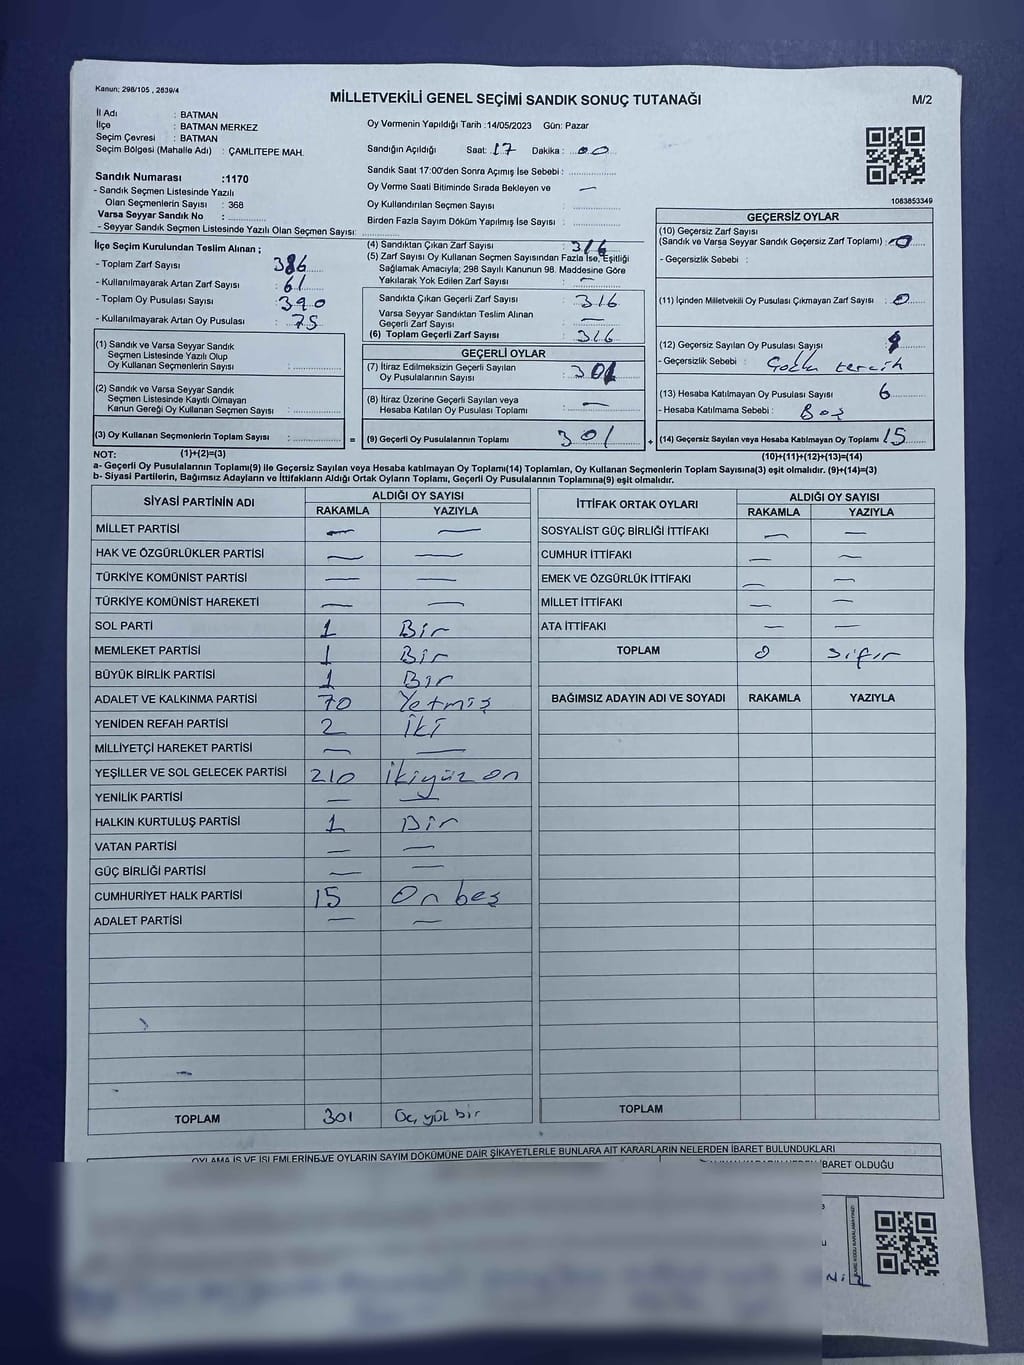 Kanun: 298/105 , 2839/4
MİLLETVEKİLİ GENEL SEÇİMİ SANDIK SONUÇ TUTANAĞI
M/2
İl Adı : BATMAN
İlçe : BATMAN MERKEZ
Seçim Çevresi : BATMAN
Seçim Bölgesi (Mahalle Adı) : ÇAMLITEPE MAH.
Sandık Numarası :1170
- Sandık Seçmen Listesinde Yazılı
Olan Seçmenlerin Sayısı : 368
Varsa Seyyar Sandık No : ............
- Seyyar Sandık Seçmen Listesinde Yazılı Olan Seçmen Sayısı: ............
Oy Vermenin Yapıldığı Tarih :14/05/2023 Gün: Pazar
Sandığın Açıldığı Saat: 17 Dakika : 00
Sandık Saat 17:00'den Sonra Açımış İse Sebebi : ............
Oy Verme Saati Bitiminde Sırada Bekleyen ve —
Oy Kullandırılan Seçmen Sayısı : ............
Birden Fazla Sayım Döküm Yapılmış İse Sayısı : ............
1083853349
İlçe Seçim Kurulundan Teslim Alınan ;
- Toplam Zarf Sayısı : 386
- Kullanılmayarak Artan Zarf Sayısı : 61
- Toplam Oy Pusulası Sayısı : 390
- Kullanılmayarak Artan Oy Pusulası : 75
(1) Sandık ve Varsa Seyyar Sandık
Seçmen Listesinde Yazılı Olup
Oy Kullanan Seçmenlerin Sayısı : ............
(2) Sandık ve Varsa Seyyar Sandık
Seçmen Listesinde Kayıtlı Olmayan
Kanun Gereği Oy Kullanan Seçmen Sayısı : ............
(3) Oy Kullanan Seçmenlerin Toplam Sayısı : ............
(4) Sandıktan Çıkan Zarf Sayısı : 316
(5) Zarf Sayısı Oy Kullanan Seçmen Sayısından Fazla İse, Eşitliği
Sağlamak Amacıyla; 298 Sayılı Kanunun 98. Maddesine Göre
Yakılarak Yok Edilen Zarf Sayısı : —
Sandıkta Çıkan Geçerli Zarf Sayısı : 316
Varsa Seyyar Sandıktan Teslim Alınan
Geçerli Zarf Sayısı : —
(6) Toplam Geçerli Zarf Sayısı : 316
GEÇERLİ OYLAR
(7) İtiraz Edilmeksizin Geçerli Sayılan
Oy Pusulalarının Sayısı : 301
(8) İtiraz Üzerine Geçerli Sayılan veya
Hesaba Katılan Oy Pusulası Toplamı : —
= (9) Geçerli Oy Pusulalarının Toplamı 301
GEÇERSİZ OYLAR
(10) Geçersiz Zarf Sayısı
(Sandık ve Varsa Seyyar Sandık Geçersiz Zarf Toplamı) : 0
- Geçersizlik Sebebi :
(11) İçinden Milletvekili Oy Pusulası Çıkmayan Zarf Sayısı : 0
(12) Geçersiz Sayılan Oy Pusulası Sayısı : 9
- Geçersizlik Sebebi : Çoklu tercih
(13) Hesaba Katılmayan Oy Pusulası Sayısı 6
- Hesaba Katılmama Sebebi : Boş
+ (14) Geçersiz Sayılan veya Hesaba Katılmayan Oy Toplamı 15
NOT: (1)+(2)=(3)
(10)+(11)+(12)+(13)=(14)
a- Geçerli Oy Pusulalarının Toplamı(9) ile Geçersiz Sayılan veya Hesaba katılmayan Oy Toplamı(14) Toplamları, Oy Kullanan Seçmenlerin Toplam Sayısına(3) eşit olmalıdır. (9)+(14)=(3)
b- Siyasi Partilerin, Bağımsız Adayların ve İttifakların Aldığı Ortak Oyların Toplamı, Geçerli Oy Pusulalarının Toplamına(9) eşit olmalıdır.
SİYASİ PARTİNİN ADI ALDIĞI OY SAYISI
RAKAMLA YAZIYLA
MİLLET PARTİSİ — —
HAK VE ÖZGÜRLÜKLER PARTİSİ — —
TÜRKİYE KOMÜNİST PARTİSİ — —
TÜRKİYE KOMÜNİST HAREKETİ — —
SOL PARTİ 1 Bir
MEMLEKET PARTİSİ 1 Bir
BÜYÜK BİRLİK PARTİSİ 1 Bir
ADALET VE KALKINMA PARTİSİ 70 Yetmiş
YENİDEN REFAH PARTİSİ 2 İki
MİLLİYETÇİ HAREKET PARTİSİ — —
YEŞİLLER VE SOL GELECEK PARTİSİ 210 İkiyüz on
YENİLİK PARTİSİ — —
HALKIN KURTULUŞ PARTİSİ 1 Bir
VATAN PARTİSİ — —
GÜÇ BİRLİĞİ PARTİSİ — —
CUMHURİYET HALK PARTİSİ 15 On beş
ADALET PARTİSİ — —
TOPLAM 301 Üç yüz bir
İTTİFAK ORTAK OYLARI ALDIĞI OY SAYISI
RAKAMLA YAZIYLA
SOSYALİST GÜÇ BİRLİĞİ İTTİFAKI — —
CUMHUR İTTİFAKI — —
EMEK VE ÖZGÜRLÜK İTTİFAKI — —
MİLLET İTTİFAKI — —
ATA İTTİFAKI — —
TOPLAM 0 sıfır
BAĞIMSIZ ADAYIN ADI VE SOYADI RAKAMLA YAZIYLA
TOPLAM
OYLAMA İŞ VE İŞLEMLERİNE VE OYLARIN SAYIM DÖKÜMÜNE DAİR ŞİKAYETLERLE BUNLARA AİT KARARLARIN NELERDEN İBARET BULUNDUKLARI
İBARET OLDUĞU